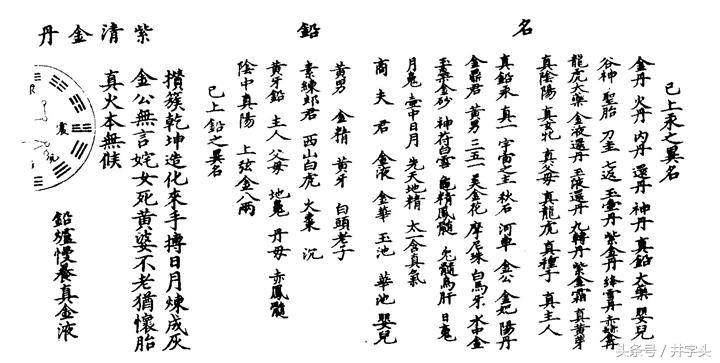 名
已上汞之異名
金丹 火丹 內丹 還丹 神丹 真鉛 大藥 嬰兒
谷神 聖胎 刀圭 七返 玉壷丹 紫金丹 絳雪丹
龍虎大藥 金液還丹 玉液還丹 九轉丹 紫金霜 真黃芽
真陰陽 真玄牝 真父母 真龍虎 真種子 真主人
真鉛汞 真一 宇宙之主 秋石 河車 金公 金妃 陽丹
金鼎君 黃男 三五一 美金花 摩尼珠 白馬牙 水中金
金砂 神符白雪 龜精鳳髓 兔髓烏肝 日魂
月魄 壷中日月 先天地精 太一含真氣
商夫君 金液 金華 玉池 華池 嬰兒
鉛
黃男 金精 黃牙 白頭老子
素練郎君 西山白虎 火棗 沉
黃牙鉛 主人 父母 地魄 丹母 赤鳳髓
陰中真陽 上弦金八兩
已上鉛之異名
紫清金丹
攢簇乾坤造化來手摶日月煉成灰
金公無言姹女死黃婆不老猶懷胎
真火本無候
鉛爐慢養真金液
震
头条号 / 井字头